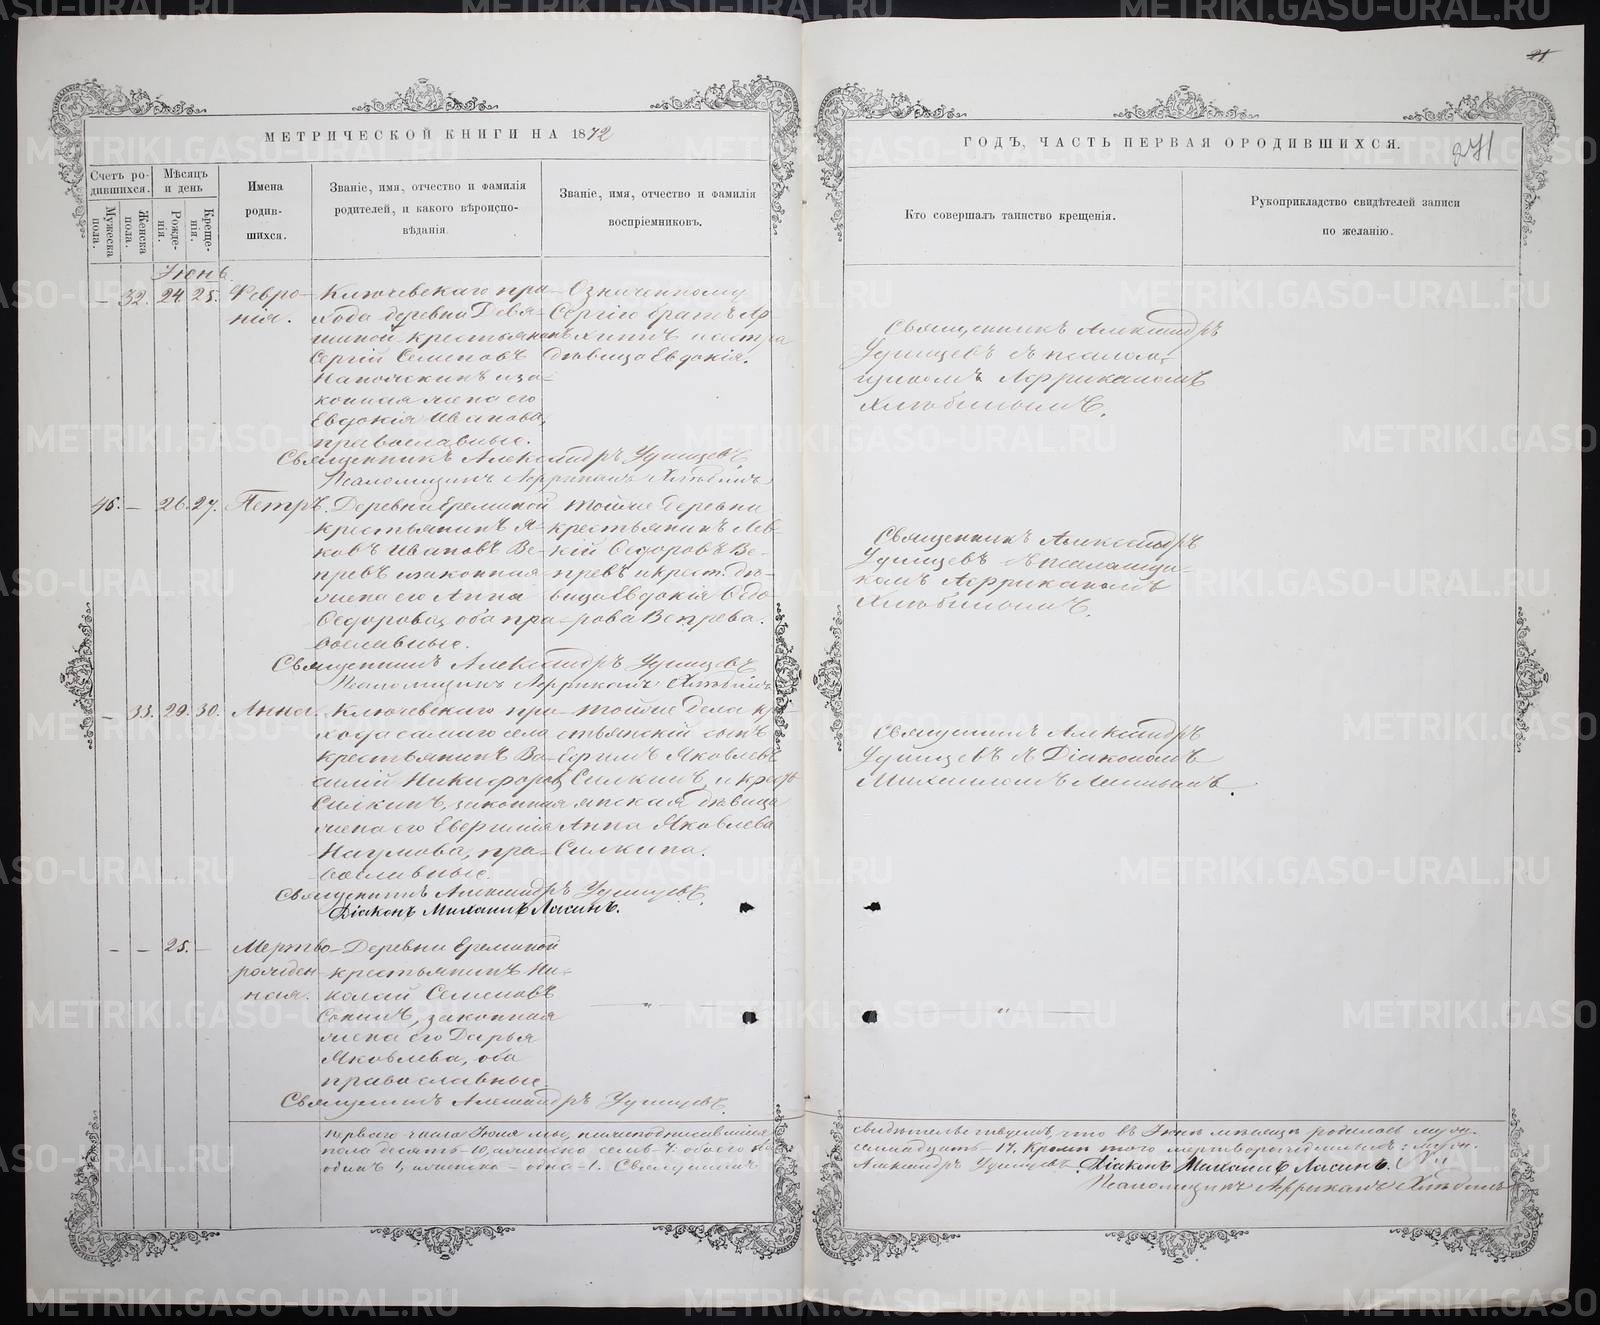 21
МЕТРИЧЕСКОЙ КНИГИ НА 1872
ГОДЪ, ЧАСТЬ ПЕРВАЯ О РОДИВШИХСЯ.
271
Счетъ родившихся.
Мужеска пола.
Женска пола.
Мѣсяцъ и день
Рожденія.
Крещенія.
Имена
родив-
шихся.
Званіе, имя, отчество и фамилія
родителей, и какого вѣроиспо-
вѣданія.
Званіе, имя, отчество и фамилія
воспріемниковъ.
Кто совершалъ таинство крещенія.
Рукоприкладство свидѣтелей записи
по желанію.
Іюнь
– 32. 24. 25. Февро-
нія.
Ключевскаго при-
хода деревни Девя-
шиной крестьянинъ
Сергій Семеновъ
зако-
нная жена его
Евдокія Иванова,
православные.
Означенному
Сергію братъ Ар-
хипъ и сестра
дѣвица Евдокія.
Священникъ Александръ
Удинцевъ съ псалом-
щикомъ Африканомъ
Хлѣбинымъ.
Священникъ Александръ Удинцевъ
Псаломщикъ Африканъ Хлѣбинъ
46. – 26. 27. Петръ.
Деревни Ереминой
крестьянинъ Я-
ковъ Ивановъ Ве-
превъ и законная
жена его Анна
Федорова, оба пра-
вославные.
Тойже деревни
крестьянинъ Лев-
кій Федоровъ Ве-
превъ и крест. дѣ-
вица Евдокія Федо-
рова Вепрева.
Священникъ Александръ
Удинцевъ съ псаломщи-
комъ Африканомъ
Хлѣбинымъ.
Священникъ Александръ Удинцевъ
Псаломщикъ Африканъ Хлѣбинъ
– 33. 29. 30. Анна.
Ключевскаго при-
хода самаго села
крестьянинъ Ва-
силій Никифоровъ
Силкинъ, законная
жена его
Наумова, пра-
вославные.
Тогоже села кре-
стьянскій сынъ
Ефимъ Яковлевъ
Силкинъ, и кресть-
янская дѣвица
Анна Яковлева
Силкина.
Священникъ Александръ
Удинцевъ съ Діакономъ
Михаиломъ
Священникъ Александръ Удинцевъ.
Діаконъ Михаилъ Ляпинъ.
– – 25. – Мертво-
рожден-
ная.
Деревни Ереминой
крестьянинъ Ни-
колай Семеновъ
законная
жена его Дарья
Яковлева, оба
православные.
Священникъ Александръ Удинцевъ.
перваго числа Іюля мы, нижеподписавшіеся
свидѣтельствуемъ, что въ Іюнѣ мѣсяцѣ родилось муж.
пола десять – 10, женска семь – 7: обоего
семнадцать – 17. Кромѣ того мертворожденныхъ: муж.
одинъ 1, женска – одна – 1. Священникъ
Александръ Удинцевъ Діаконъ Михаилъ Ляпинъ.
Псаломщикъ Африканъ Хлѣбинъ